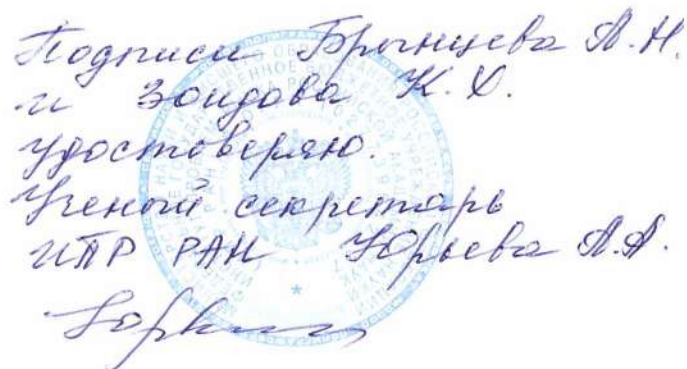 Подписи Брынцева А.Н.
и Зоидова К.Х.
удостоверяю.
Ученый секретарь
ИПР РАН Юрьева А.А.